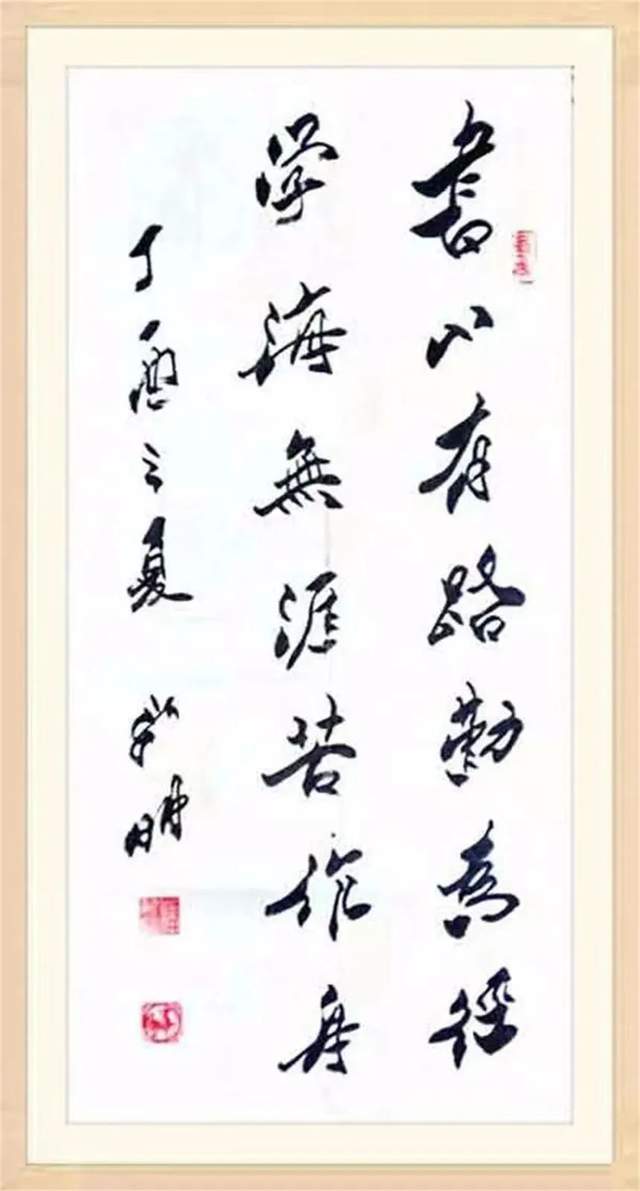 書山有路勤為徑
學海無涯苦作舟
丁酉之夏
明